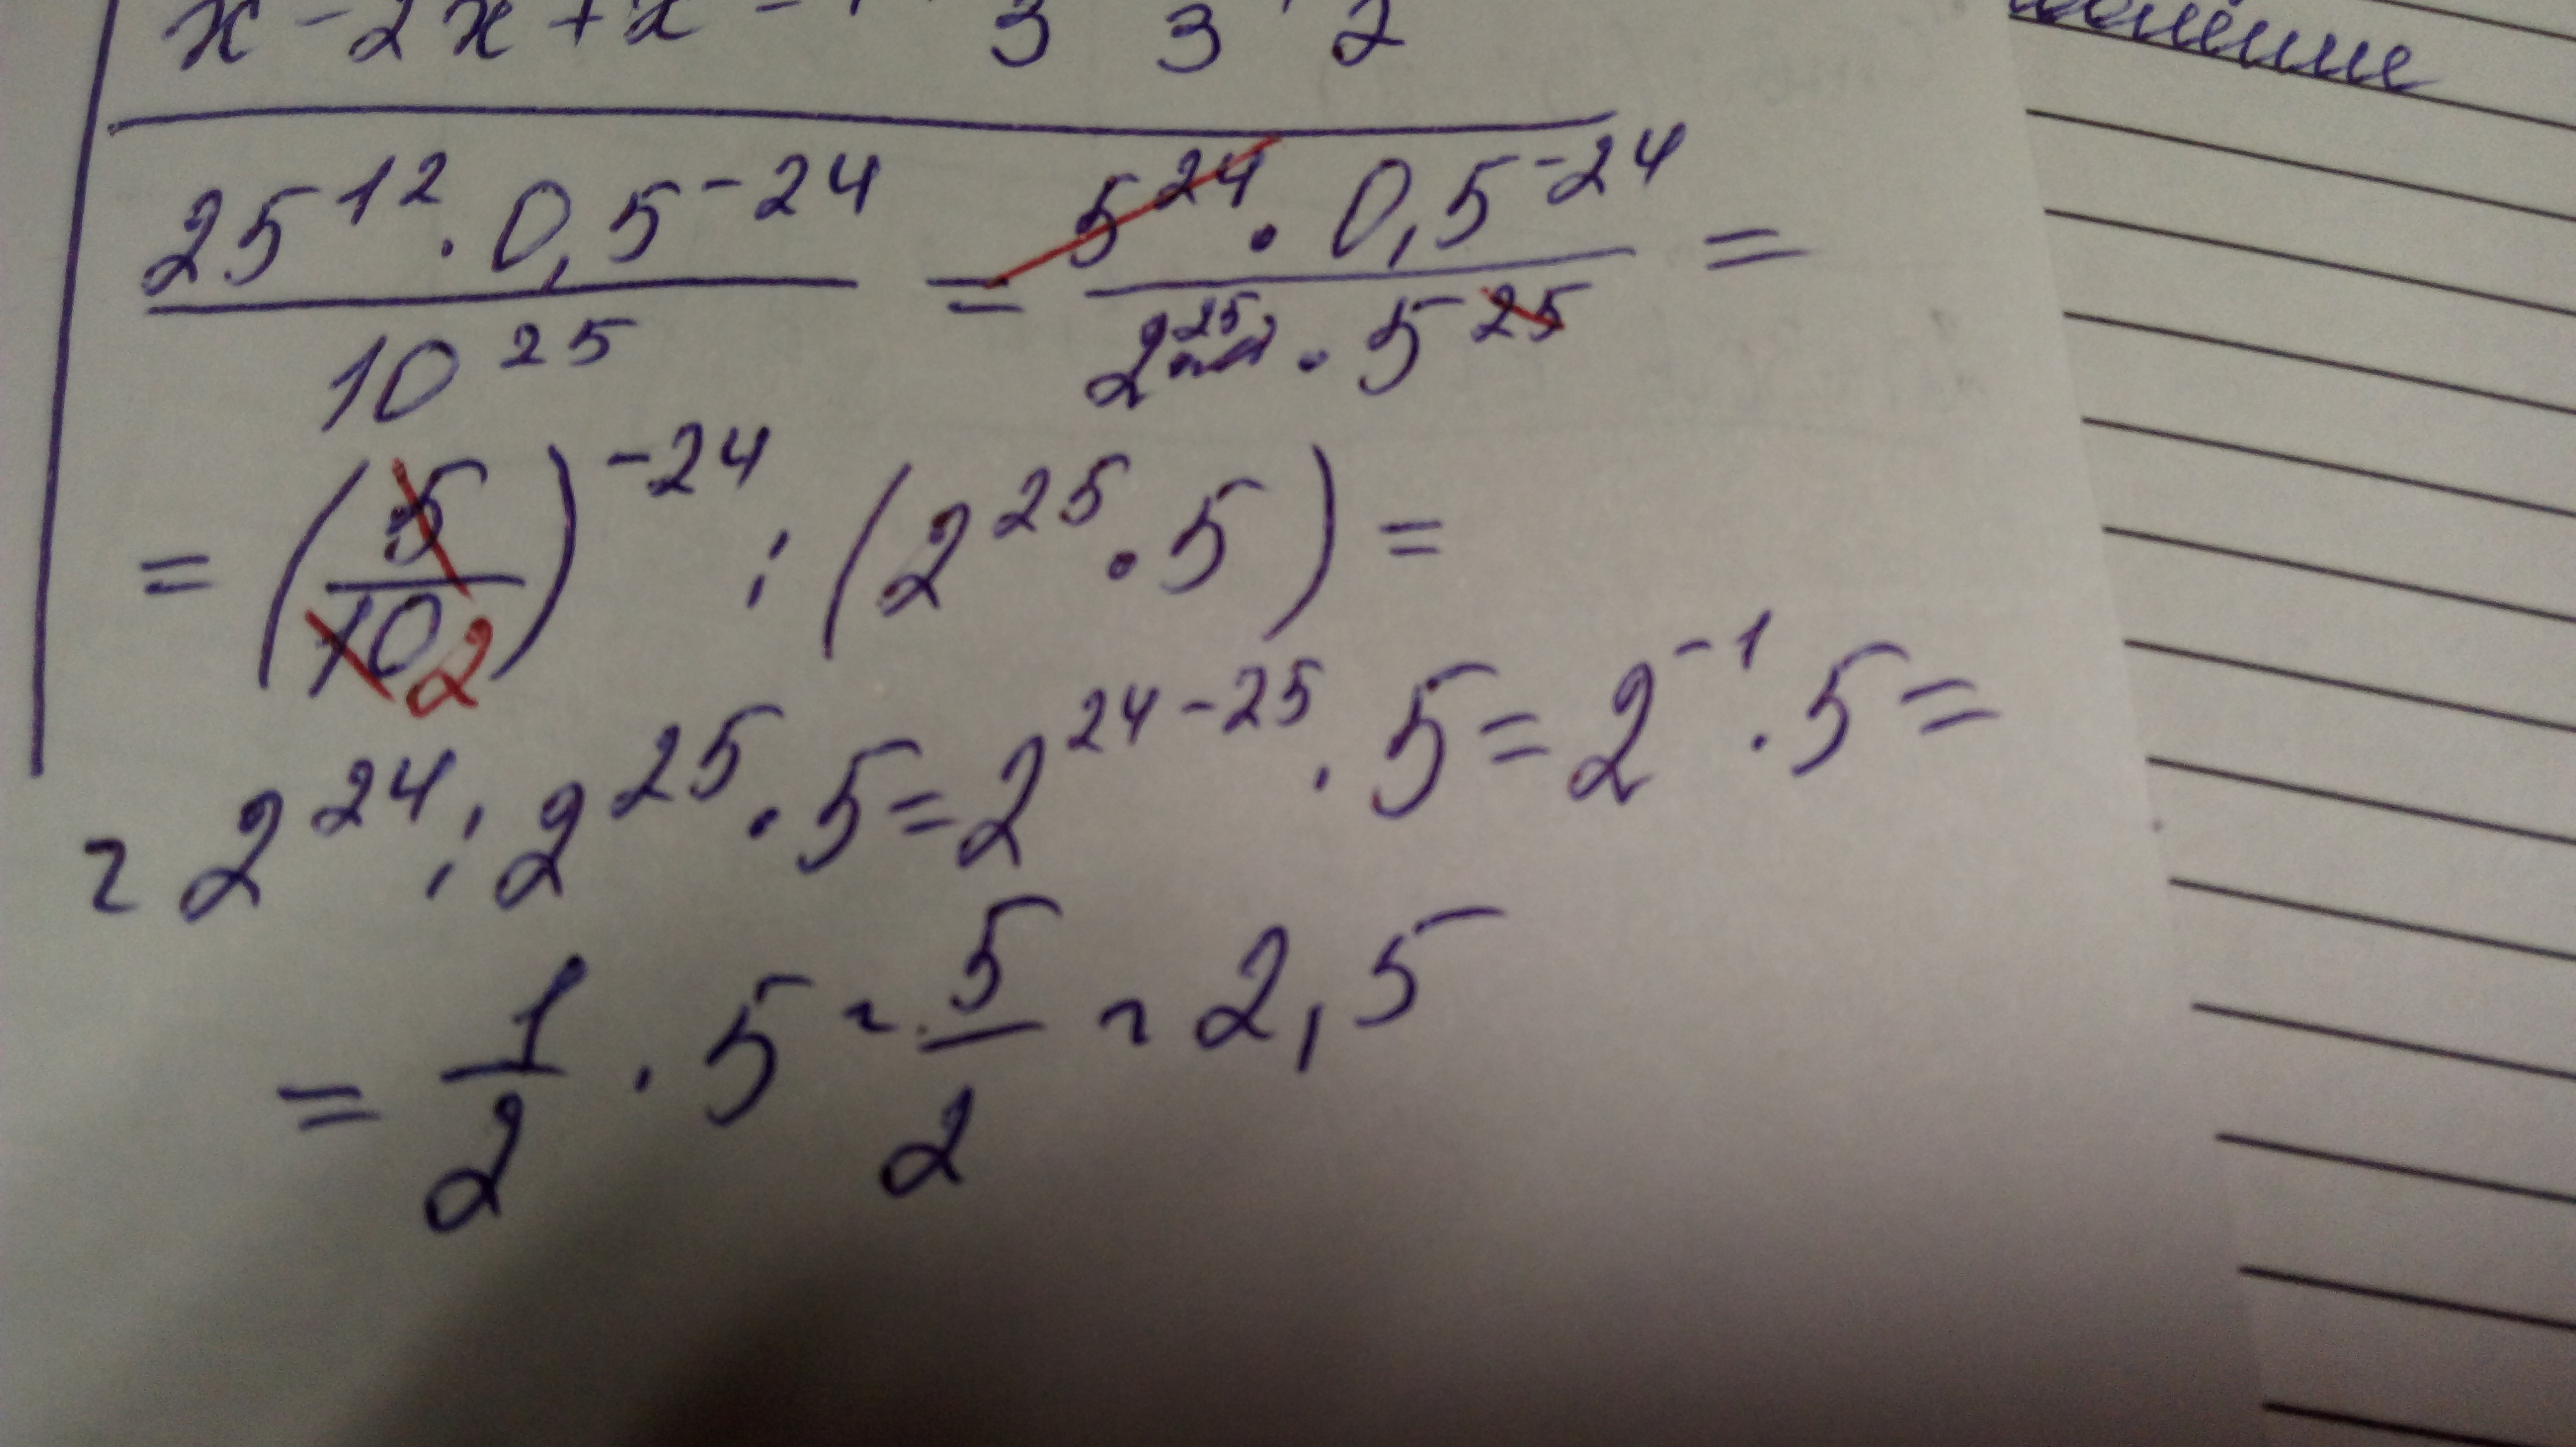 x - 2x + x 3 3 2
25^12 · 0,5^-24 / 10^25 = 5^24 · 0,5^-24 / 2^25 · 5^25 =
= (5/10 2)^-24 : (2^25 · 5) =
= 2^24 : 2^25 · 5 = 2^24-25 · 5 = 2^-1 · 5 =
= 1/2 · 5 = 5/2 = 2,5